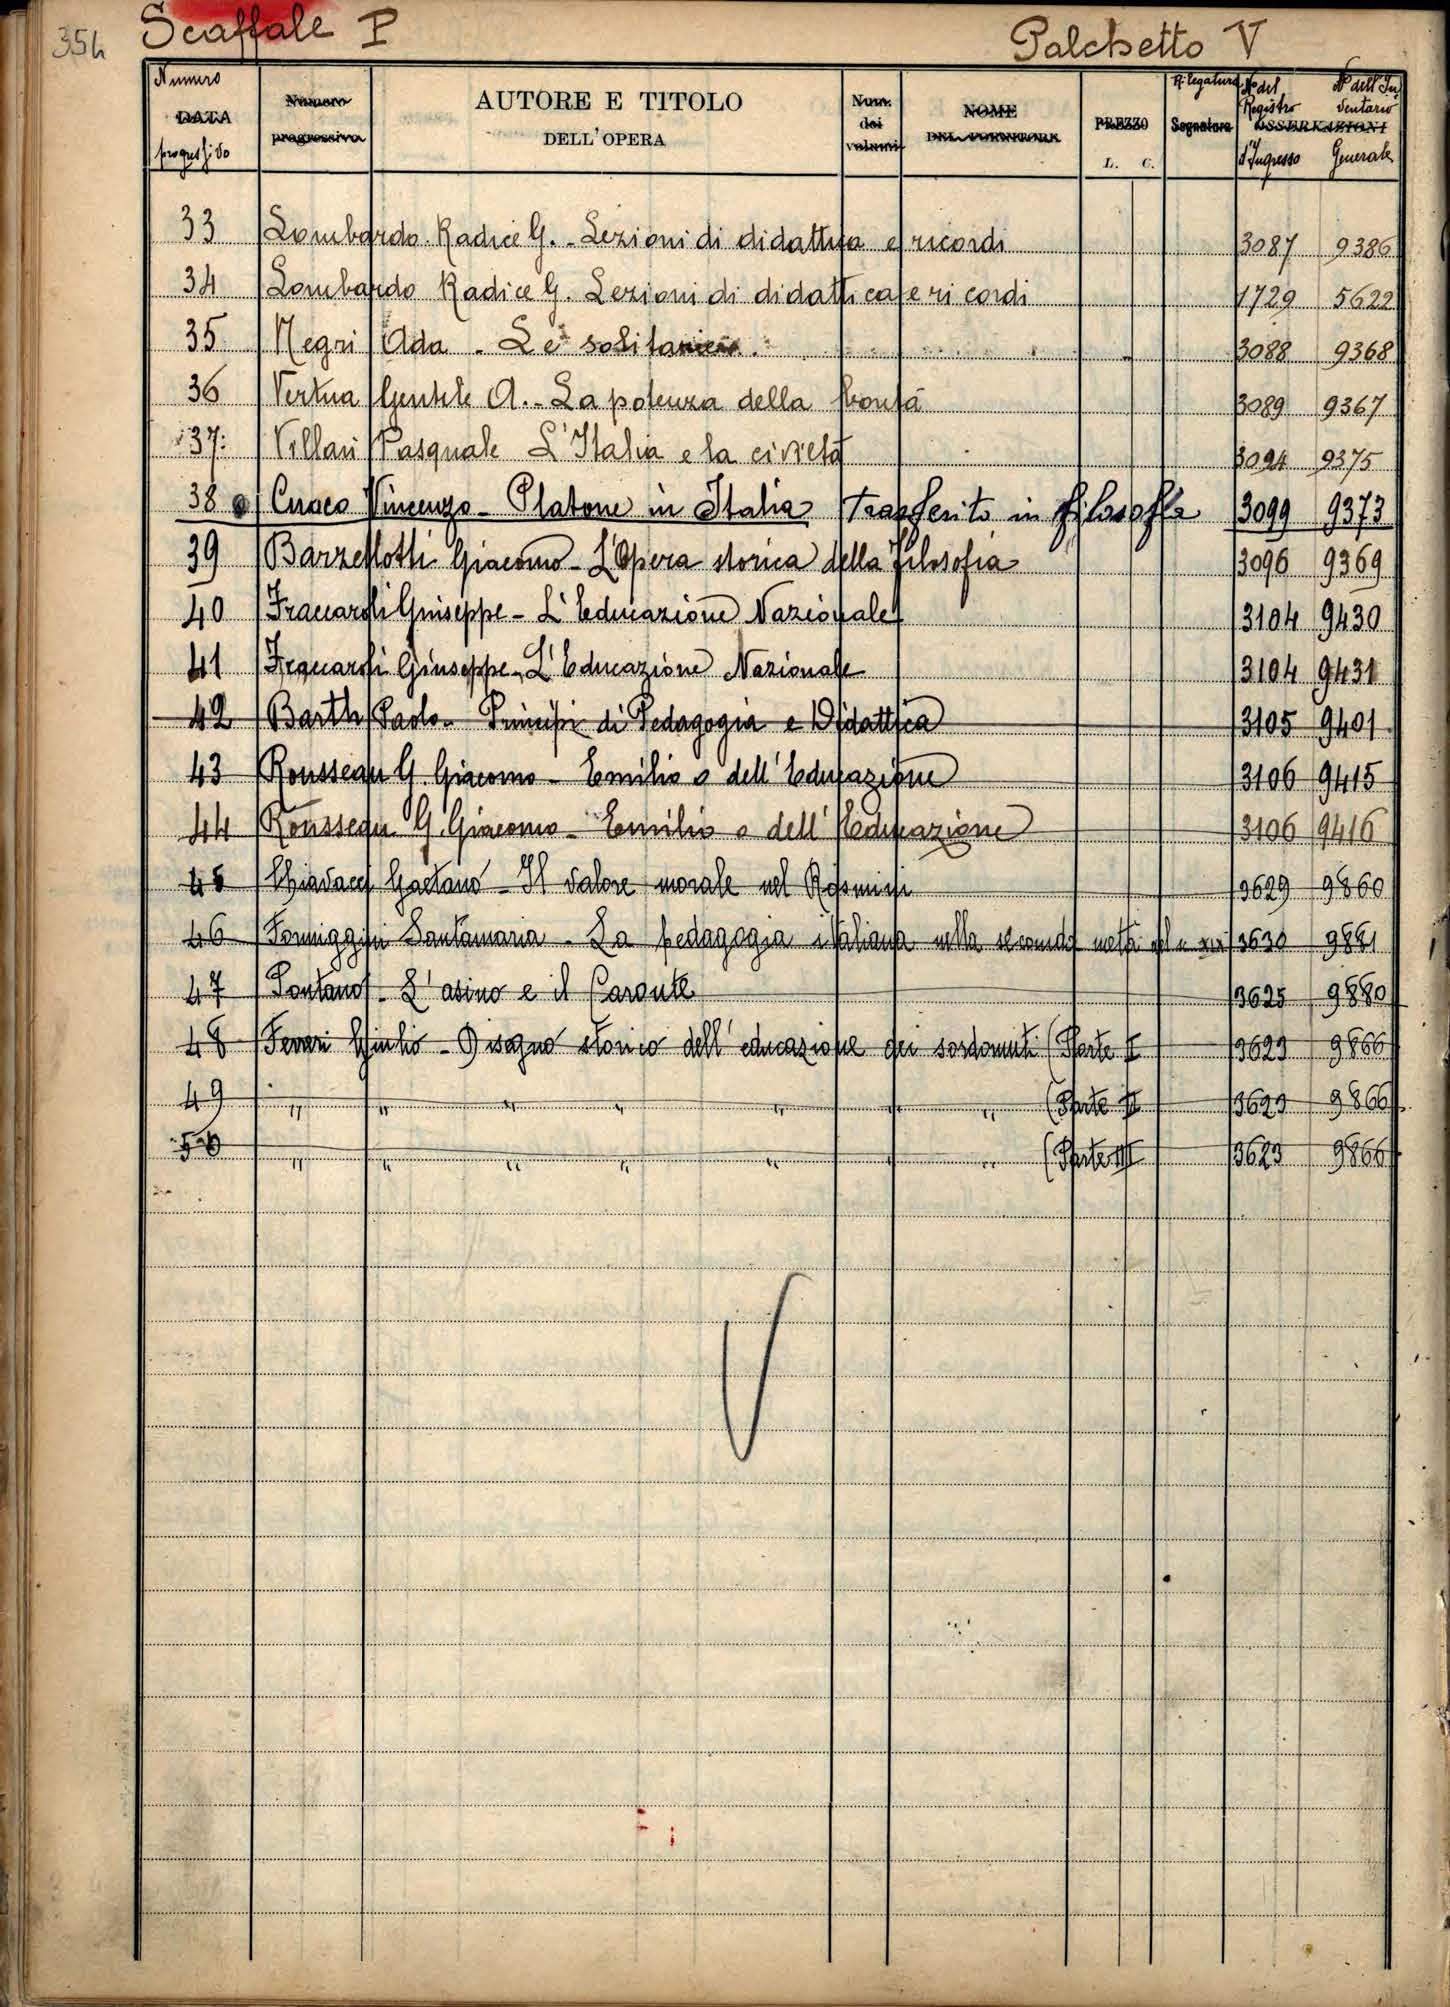 354
Scaffale P Palchetto V
Numero DATA progressivo Numero progressivo AUTORE E TITOLO DELL'OPERA Num. dei volumi NOME DEL FORNITORE PREZZO L. C. Rilegatura Segnatura OSSERVAZIONI No del Registro d'Ingresso No dell'Inventario Generale
33 Lombardo. Radice G. - Lezioni di didattica e ricordi 3087 9386
34 Lombardo Radice G. Lezioni di didattica e ricordi 1729 5622
35 Negri Ada - Le solitarie 3088 9368
36 Vertua Gentile A. - La potenza della bontà 3089 9367
37: Villari Pasquale L'Italia e la civiltà 3094 9375
38 Cuoco Vincenzo - Platone in Italia Trasferito in filosofia 3099 9373
39 Barzellotti Giacomo - L'Opera storica della filosofia 3096 9369
40 Fraccaroli Giuseppe - L'Educazione Nazionale 3104 9430
41 Fraccaroli Giuseppe - L'Educazione Nazionale 3104 9431
42 Barth Paolo - Principi di Pedagogia e Didattica 3105 9401
43 Rousseau G. Giacomo - Emilio o dell'Educazione 3106 9415
44 Rousseau G. Giacomo - Emilio o dell'Educazione 3106 9416
45 Chiavacci Gaetano - Il valore morale nel Rosmini 3629 9860
46 Formiggini Santamaria - La pedagogia italiana nella seconda metà del s. XIX 3630 9881
47 Pontano - L'asino e il Caronte 3625 9880
48 Ferreri Giulio - Disegno storico dell'educazione dei sordomuti (Parte I 3623 9866
49 " " " " " " " (Parte II 3623 9866
50 " " " " " " " (Parte III 3623 9866